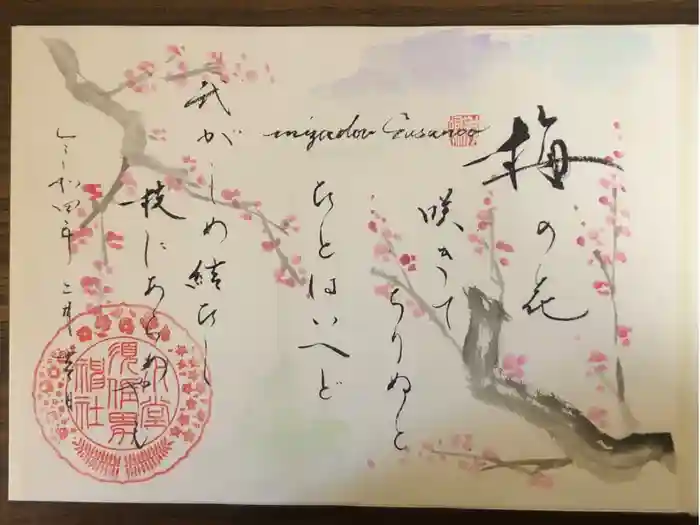 梅の花
咲きて
ちりぬと
ひとはいへど
mizudou Susanoo
我がしめ結ひし
枝にあらめやも
令和四年 二月 吉日
水堂
須佐男
神社